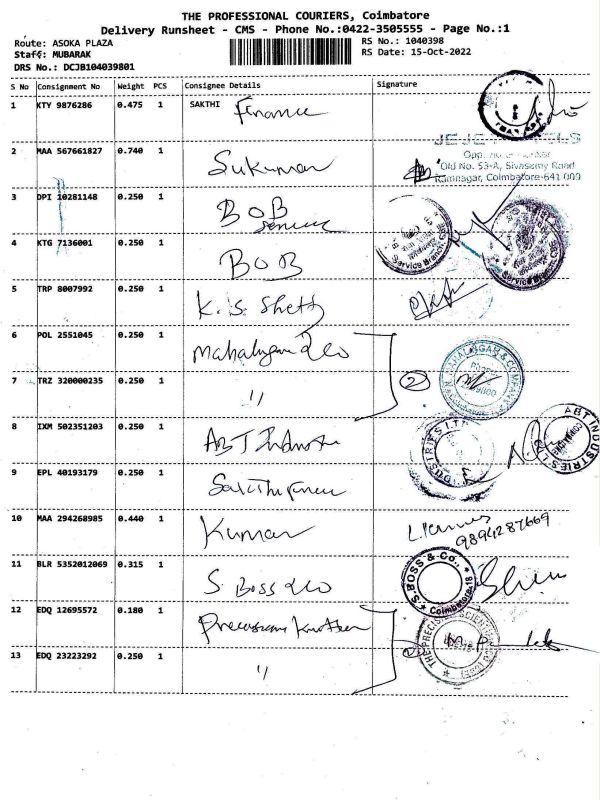 THE PROFESSIONAL COURIERS, Coimbatore
Delivery Runsheet - CMS - Phone No.:0422-3505555 - Page No.:1
Route: ASOKA PLAZA
Staff: MUBARAK
DRS No.: DCJB104039801
RS No.: 1040398
RS Date: 15-Oct-2022
S No Consignment No Weight PCS Consignee Details Signature
1 KTY 9876286 0.475 1 SAKTHI Finance
JE JE
Opp.
Old No. 53-A, Sivasamy Road
Ramnagar, Coimbatore-641 009
2 MAA 567661827 0.740 1 Sukumar
3 DPI 10281148 0.250 1 BOB
Service
Service Branch, CBE
Service Branch, CBE
4 KTG 7136001 0.250 1 BOB
5 TRP 8007992 0.250 1 K. S. Shetty
6 POL 2551045 0.250 1
& COMPANY
7 TRZ 320000235 0.250 1 "
2
8 IXM 502351203 0.250 1 ABT
INDUSTRIES LTD
ABT INDUSTRIES
9 EPL 40193179 0.250 1 Sakthi Finance
10 MAA 294268985 0.440 1 Kumar
9894287669
11 BLR 5352012069 0.315 1 S. Boss &Co
S. BOSS & Co., Coimbatore-18
12 EDQ 12695572 0.180 1
THE PRECISION SCIENTIFIC
13 EDQ 23223292 0.250 1 "